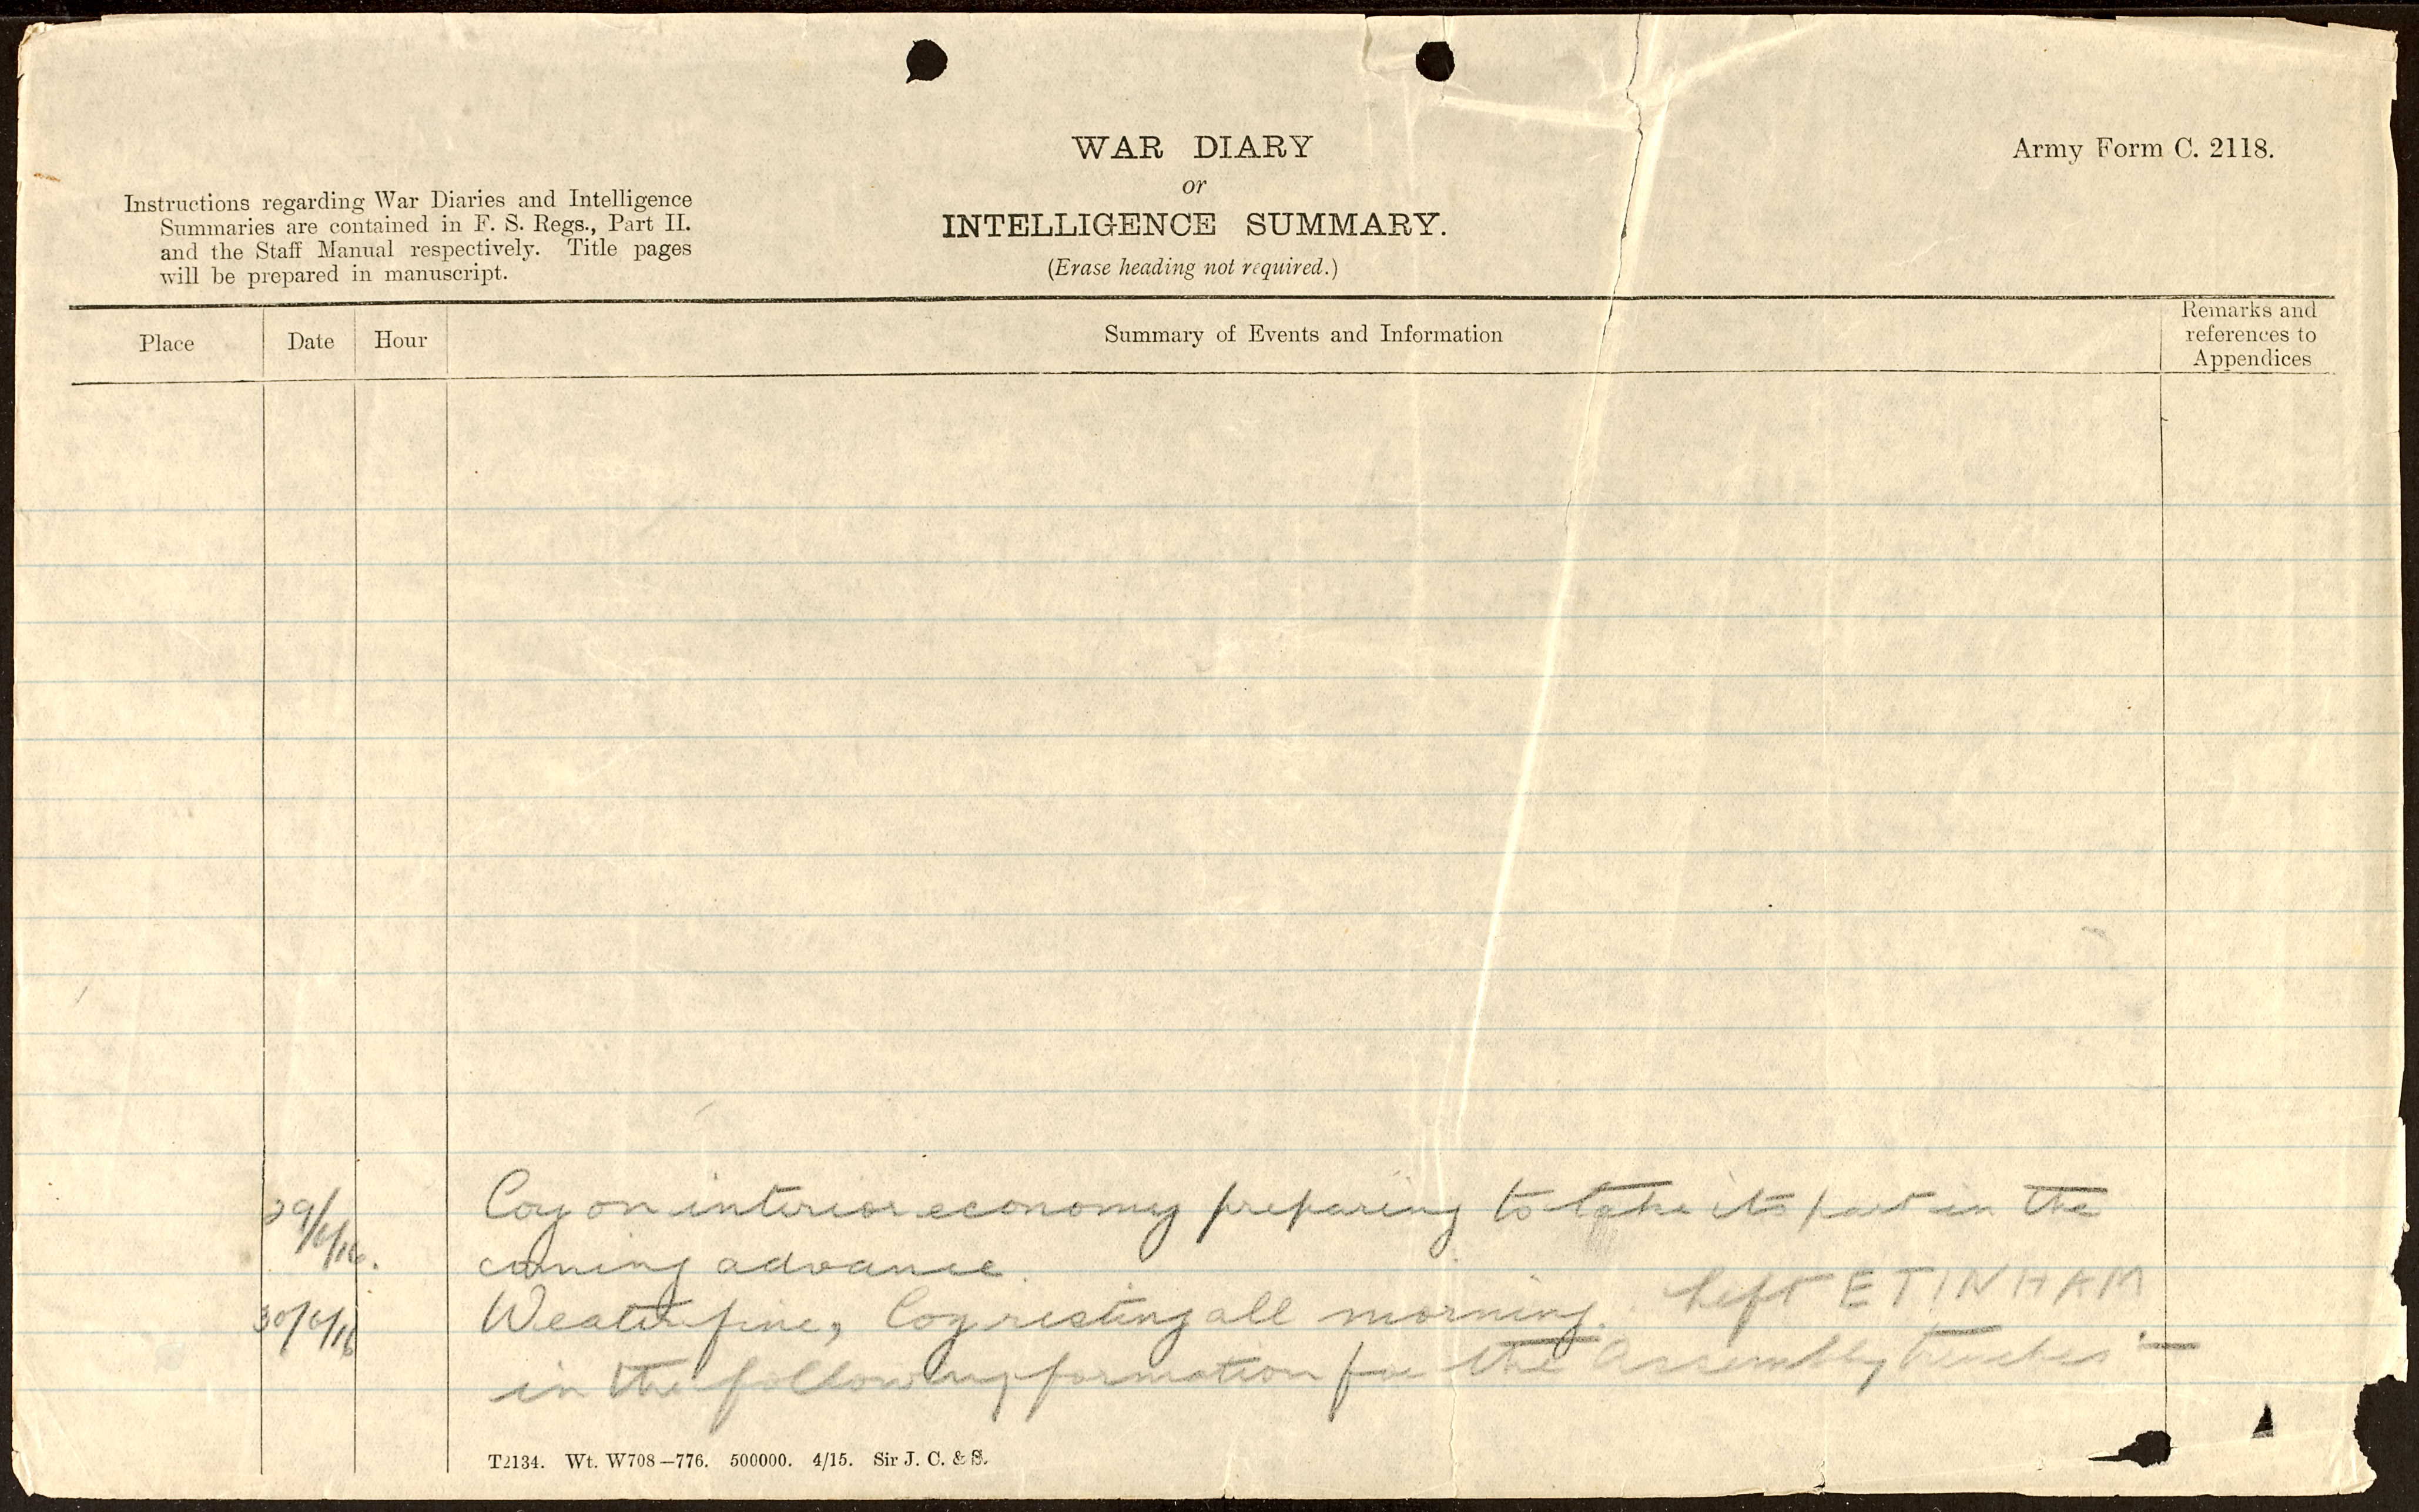 WAR DIARY
or
INTELLIGENCE SUMMARY.
(Erase heading not required.)
Army Form C. 2118.
Instructions regarding War Diaries and Intelligence
Summaries are contained in F. S. Regs., Part II.
and the Staff Manual respectively. Title pages
will be prepared in manuscript.
Place
Date
Hour
Summary of Events and Information
Remarks and
references to
Appendices
29/6/16. Coy on interior economy preparing to take its part in the
coming advance.
30/6/16 Weather fine, Coy resting all morning. Left ETINHAM
in the following formation for the Assembly trenches :—
T2134. Wt. W708—776. 500000. 4/15. Sir J. C. & S.